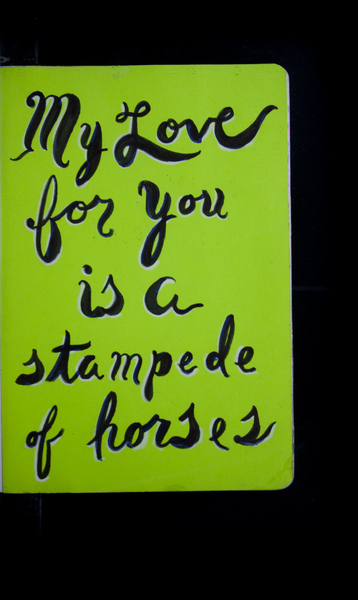 My Love
for You
is a
stampede
of horses